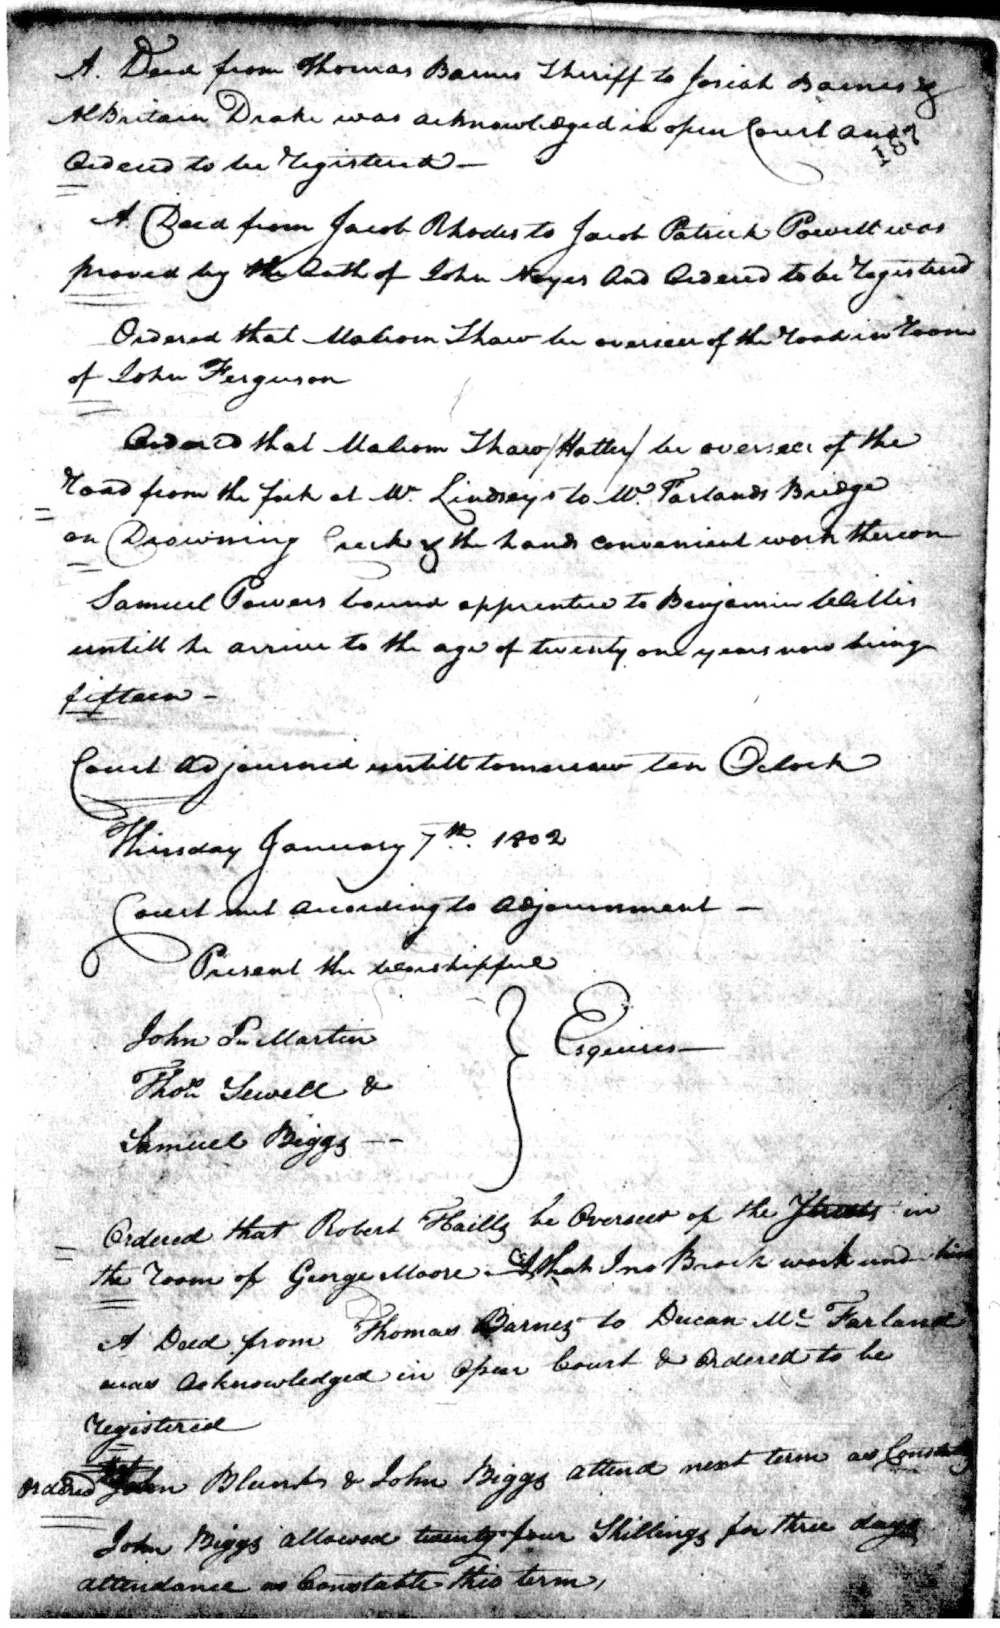 A. Deed from Thomas Barnes Sheriff to Josiah Barnes &
AlBritain Drake was acknowledged in open Court and
187
Ordered to be Registered —
A. Deed from Jacob Rhodes to Jacob Patrick Powell was
proved by the Oath of John Noyes And Ordered to be Registered
Ordered that Malcom Shaw be overseer of the road in Room
of John Ferguson
Ordered that Malcom Shaw /Hatter/ be overseer of the
road from the fork at Mr. Lindseys to Mc. Farlands Bridge
on Drowning Creek & the hands convenient work thereon
Samuel Powers bound apprentice to Benjamin Willis
untill he arrive to the age of twenty one years now being
fifteen -
Court Adjourned untill tomorrow ten Oclock
Thirsday January 7th. 1802
Court met According to Adjournment —
Present the Worshipfull
John Martin
Esquires —
Thos. Sewell &
Samuel Biggs --
Ordered that Robert Hails be Overseer of the Streets in
the room of George Moore & that Jno Brock work und him
A Deed from Thomas Barnes to Ducan Mc Farland
was Acknowledged in Open Court & Ordered to be
registered
Ordered John Blunts & John Biggs attend next term as
John Biggs allowed twenty four Shillings for three days
attendance as Constable this term,